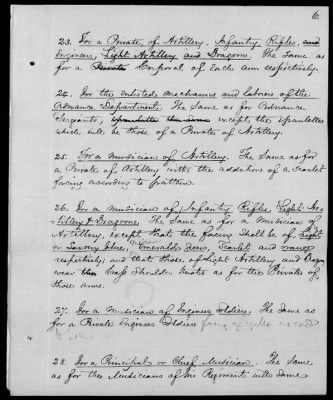 6.
23. For a Private, of Artillery, Infantry, Rifles, and
Engineers, Light Artillery and Dragoons. The Same as
for a Corporal of each arm respectively.
24. For the enlisted mechanics and laborers of the
Ordnance Department. The Same as for Ordnance
Sergeants, except the Epaulettes
which will be those of a Private of Artillery.
25. For a Musician of Artillery. The Same as for
a Private of Artillery with the addition of a Scarlet
facing according to pattern.
26. For a musician of Infantry, Rifles, Light Ar-
-tillery & Dragoons. The Same as for a Musician of
Artillery, except that the facing Shall be of, Light
or Saxony blue, Emerald Green, Scarlet and orange
respectively; and that those of Light Artillery and Dragoons
wear the brass Shoulder as for the Privates of
those arms.
27. For a Musician of Engineer soldiers. The Same as
for a Private Engineer Soldier facing of
28. For a Principal or Chief Musician. The Same
as for the Musicians of his Regiment with Same